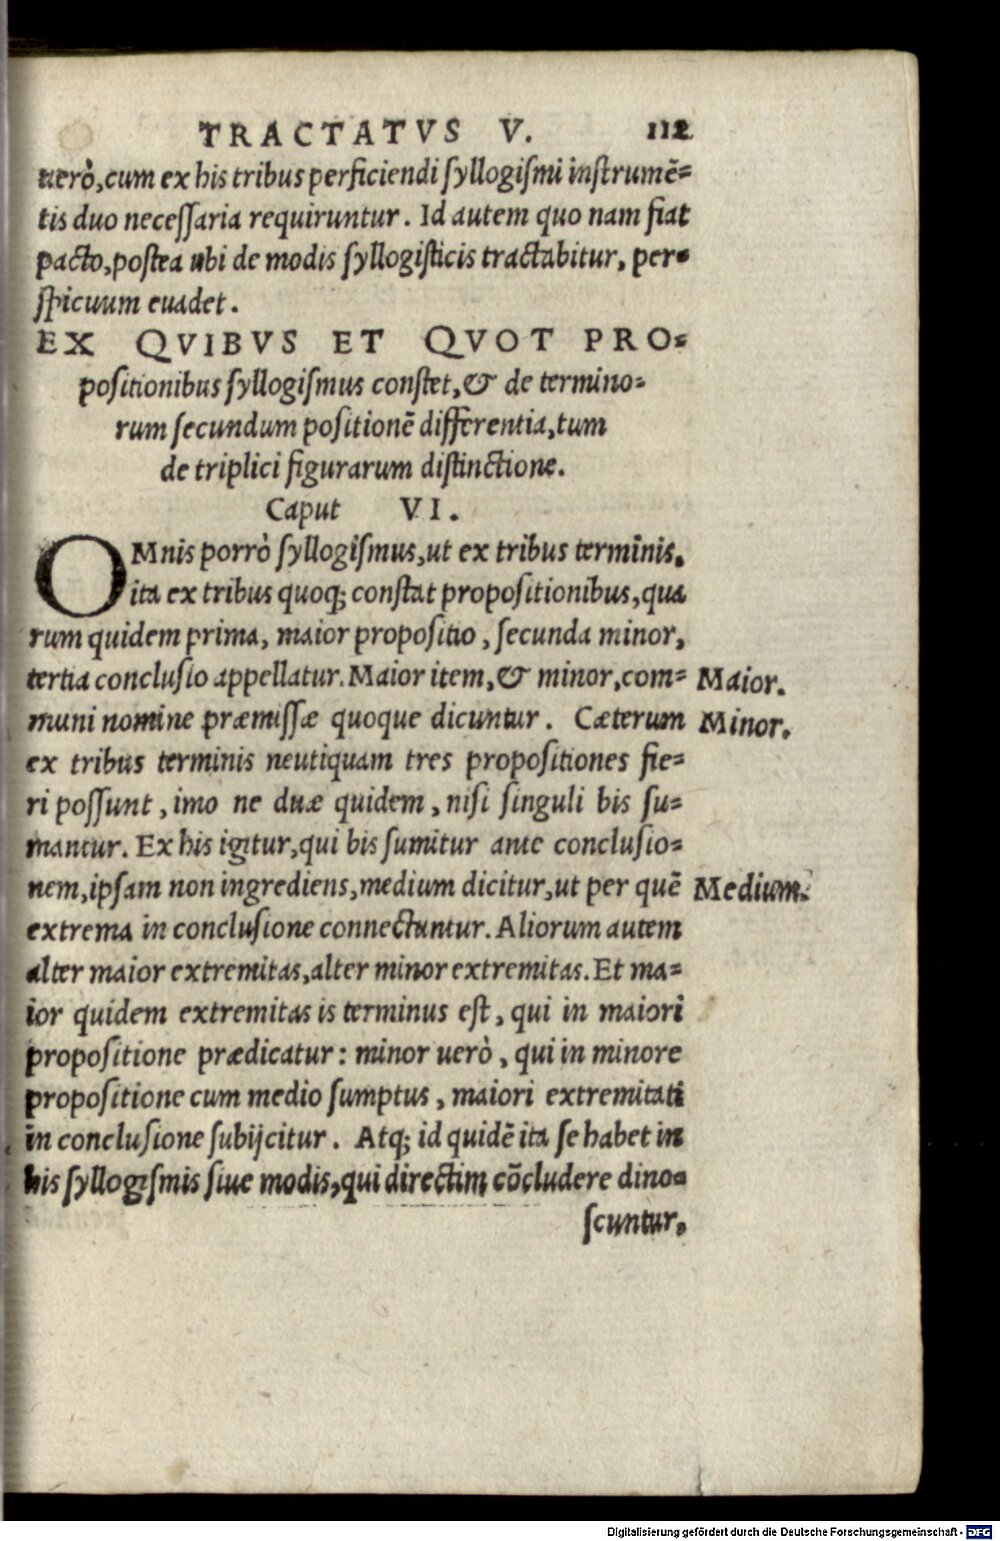 TRACTATVS V. 112
uerò, cum ex his tribus perficiendi syllogismi instrumē=
tis duo necessaria requiruntur. Id autem quo nam fiat
pacto, postea ubi de modis syllogisticis tractabitur, per=
spicuum euadet.
EX QVIBVS ET QVOT PRO=
positionibus syllogismus constet, & de termino=
rum secundum positionē differentia, tum
de triplici figurarum distinctione.
Caput VI.
OMnis porrò syllogismus, ut ex tribus terminis,
ita ex tribus quoq; constat propositionibus, qua
rum quidem prima, maior propositio, secunda minor,
tertia conclusio appellatur. Maior item, & minor, com= Maior.
muni nomine præmissæ quoque dicuntur. Cæterum Minor.
ex tribus terminis neutiquam tres propositiones fie=
ri possunt, imo ne duæ quidem, nisi singuli bis su=
mantur. Ex his igitur, qui bis sumitur ante conclusio=
nem, ipsam non ingrediens, medium dicitur, ut per quē Medium.
extrema in conclusione connectantur. Aliorum autem
alter maior extremitas, alter minor extremitas. Et ma=
ior quidem extremitas is terminus est, qui in maiori
propositione prædicatur: minor uerò, qui in minore
propositione cum medio sumptus, maiori extremitati
in conclusione subijcitur. Atq; id quidē ita se habet in
his syllogismis siue modis, qui directim cōcludere dino=
scuntur.
Digitalisierung gefördert durch die Deutsche Forschungsgemeinschaft - DFG